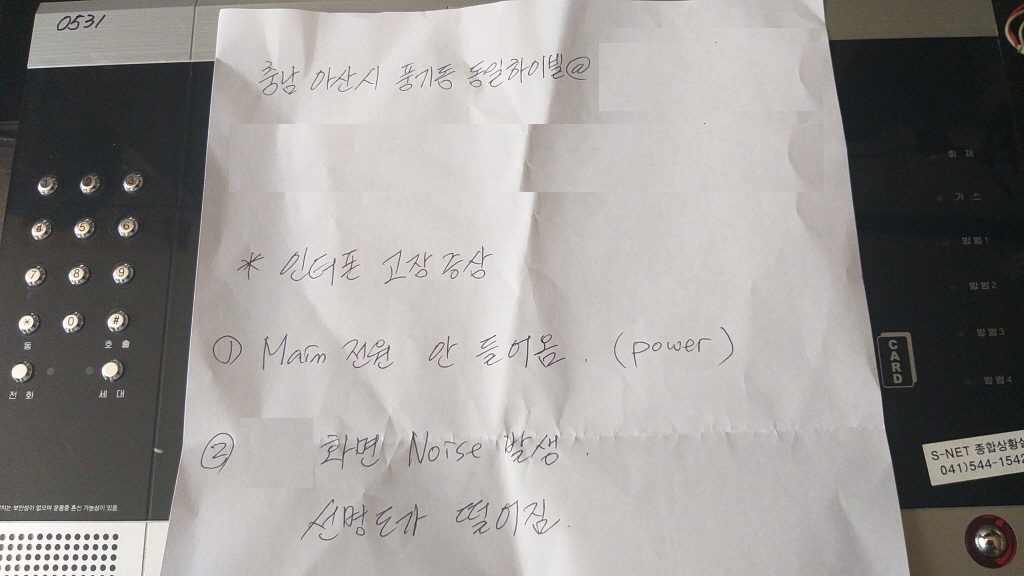 0531
충남 아산시 풍기동 동일하이빌@
* 인터폰 고장증상
① Main 전원 안 들어옴. (power)
② 화면 Noise 발생.
선명도가 떨어짐.
1 2 3
4 5 6
7 8 9
* 0 #
돌 호출
전화 세대
치는 보안성이 없으며 운용중 혼신 가능성이 있음
화재
가스
방범1
방범2
방범3
방범4
CARD
S-NET 종합상황실
041)544-1542